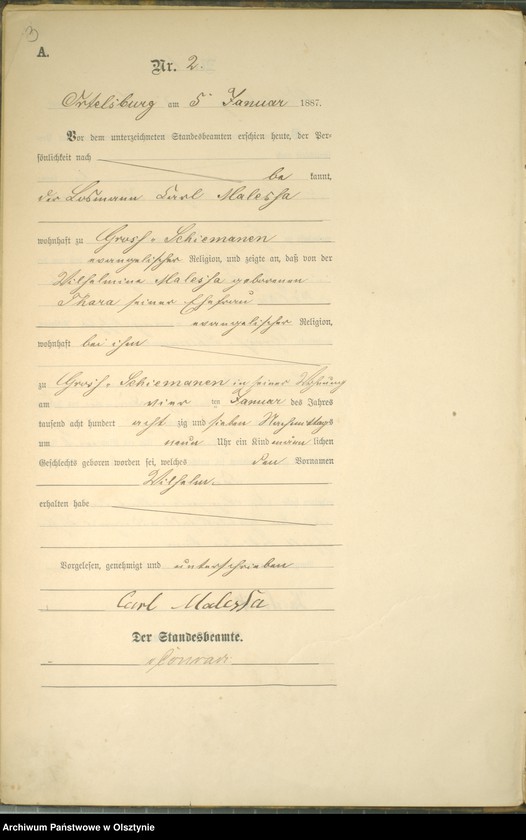 3
A.
Nr. 2.
Ortelsburg am 5 Januar 1887.
Vor dem unterzeichneten Standesbeamten erschien heute, der Per-
sönlichkeit nach
be kannt,
der Losmann Carl Malessa
wohnhaft zu Groß-Schiemanen
evangelischer Religion, und zeigte an, daß von der
Wilhelmine Malessa geborenen
seiner Ehefrau
evangelischer Religion,
wohnhaft bei ihm
zu Groß-Schiemanen in seiner Wohnung
am vier ten Januar des Jahres
tausend acht hundert acht zig und sieben Nachmittags
um neun Uhr ein Kind männ lichen
Geschlechts geboren worden sei, welches den Vornamen
Wilhelm.
erhalten habe
Vorgelesen, genehmigt und unterschrieben
Carl Malessa
Der Standesbeamte.
Archiwum Państwowe w Olsztynie